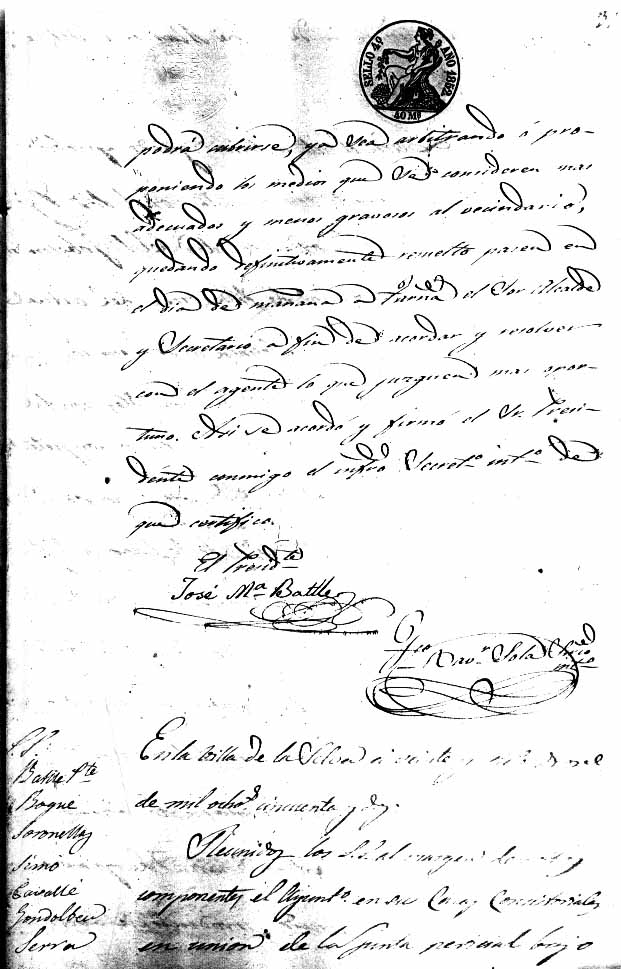 SELLO 4º AÑO 1852
40 Ms
podrá cubrirse, ya sea arbitrando ó pro-
poniendo los medios que se consideren mas
adecuados y menos gravosos al vecindario,
quedando definitivamente resuelto pasen en
el dia de mañana a el Sor Alcalde
y Secretario a fin de acordar y resolver
con el agente lo que juzguen mas opor-
tuno. Asi se acordó y firmó el Sr. Presi-
dente conmigo el infro Secreto. into. de
que certifico.
El Presidte
José Ma Batlle
Sola
P.P.
Batlle Pte
Boque
Soronellas
Simó
Cavallé
Gondolbeu
Serra
En la Villa de la Selva á veinte y
de mil ochos. cincuenta y dos.
Reunidos los Ss. al margen
componentes el Ayunto. en su Casas Consistoriales
en union de la Junta pericial bajo